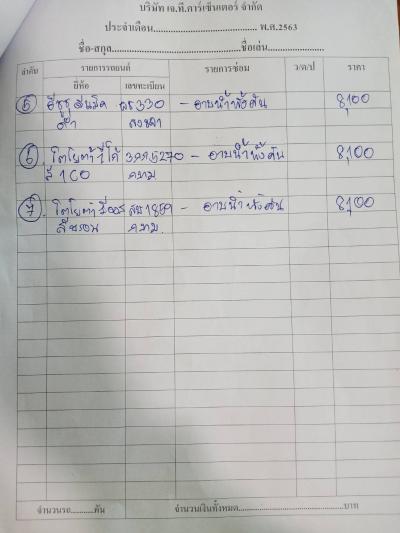 บริษัท เจ.ที.คาร์เซ็นเตอร์ จำกัด
ประจำเดือน.......................................... พ.ศ.2563
ชื่อ-สกุล..........................................ชื่อเล่น....................
ลำดับ รายการรถยนต์ รายการซ่อม ว/ด/ป ราคา
ยี่ห้อ เลขทะเบียน
5 อีซูซุ 330 - อาบน้ำทั้งคัน 8,100
ดำ สงขลา
6 โตโยต้า วีโก้ 5270 - อาบน้ำทั้งคัน 8,100
สี 1CO กทม
7 โตโยต้า วีออส 1859 - อาบน้ำทั้งคัน 8,100
กทม.
จำนวนรถ..........คัน จำนวนเงินทั้งหมด..............................บาท